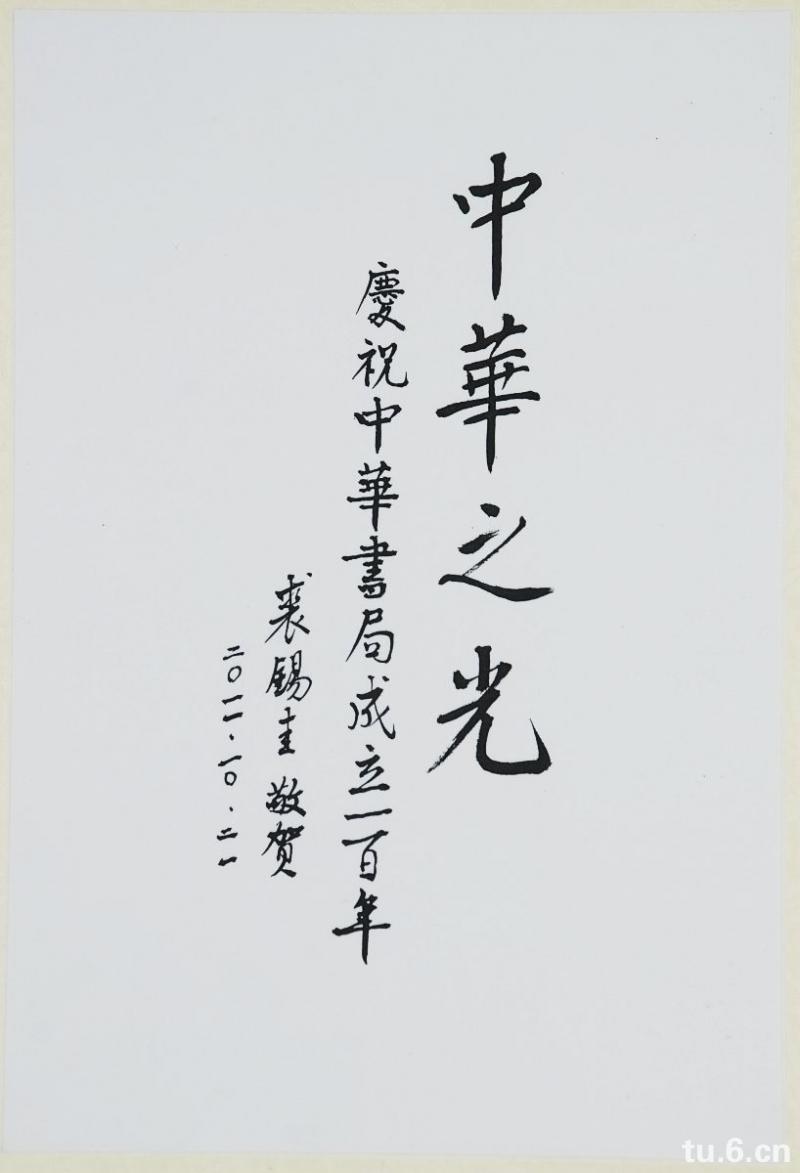 中華之光
慶祝中華書局成立一百年
裘錫圭敬賀
二〇一一·一〇·二一
tu.6.cn